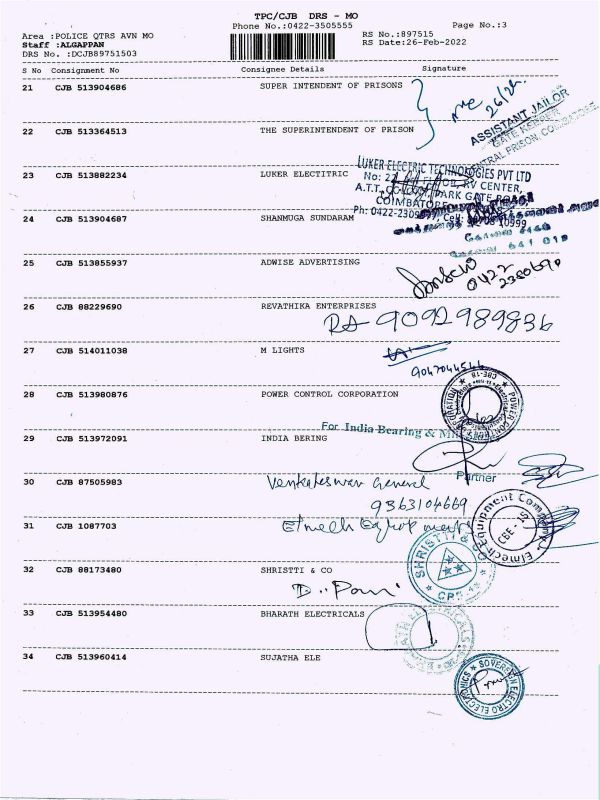 TPC/CJB DRS - MO
Phone No.:0422-3505555
Page No.:3
Area :POLICE QTRS AVN MO
RS No.:897515
Staff :ALGAPPAN
RS Date:26-Feb-2022
DRS No. :DCJB89751503
S No Consignment No Consignee Details Signature
21 CJB 513904686 SUPER INTENDENT OF PRISONS
26/2
ASSISTANT JAILOR
GATE KEEPER
CENTRAL PRISON, COIMBATORE
22 CJB 513364513 THE SUPERINTENDENT OF PRISON
23 CJB 513882234 LUKER ELECTITRIC
LUKER ELECTRIC TECHNOLOGIES PVT LTD
RV CENTER,
PARK GATE ROAD
COIMBATORE
Ph: 0422-2309
24 CJB 513904687 SHANMUGA SUNDARAM
25 CJB 513855937 ADWISE ADVERTISING
0422
26 CJB 88229690 REVATHIKA ENTERPRISES
9092989836
27 CJB 514011038 M LIGHTS
28 CJB 513980876 POWER CONTROL CORPORATION
POWER CONTROL CORPORATION
CBE-18
29 CJB 513972091 INDIA BERING
For India Bearing &
Partner
30 CJB 87505983 Venkateswar General
9363104669
31 CJB 1087703 Elmech Equipments
Elmech Equipment Company
CBE -
32 CJB 88173480 SHRISTTI & CO
SHRISTTI &
33 CJB 513954480 BHARATH ELECTRICALS
34 CJB 513960414 SUJATHA ELE
SOVEREIGN ELECTRO ELECTRONICS